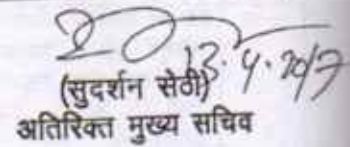 13.4.2017
(सुदर्शन सेठी)
अतिरिक्त मुख्य सचिव